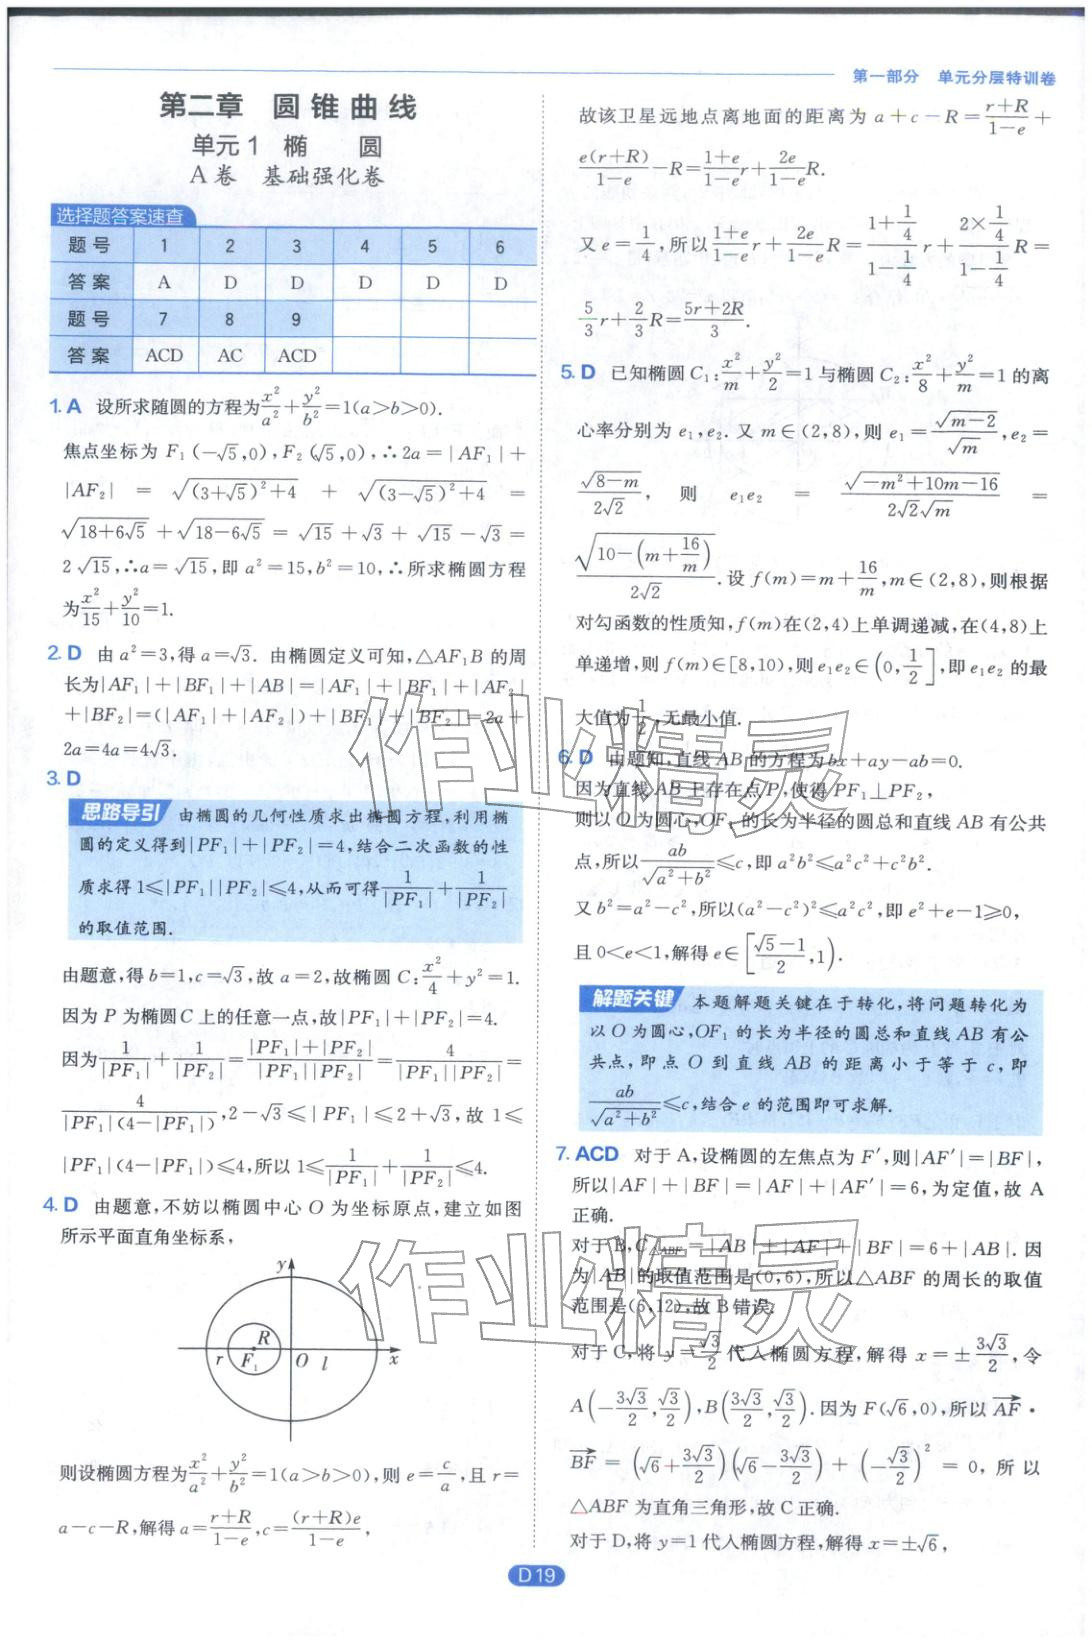 第一部分 单元分层特训卷
第二章 圆锥曲线
单元1 椭 圆
A卷 基础强化卷
选择题答案速查
题号 1 2 3 4 5 6
答案 A D D D D D
题号 7 8 9
答案 ACD AC ACD
1. A 设所求随圆的方程为x²/a²+y²/b²=1(a>b>0).
焦点坐标为 F₁(-√5,0),F₂(√5,0),∴2a=|AF₁|+
|AF₂| = √((3+√5)²+4) + √((3-√5)²+4) =
√(18+6√5)+√(18-6√5) = √15+√3+√15-√3=
2√15,∴a=√15,即 a²=15,b²=10,∴所求椭圆方程
为x²/15+y²/10=1.
2. D 由 a²=3,得 a=√3. 由椭圆定义可知,△AF₁B 的周
长为|AF₁|+|BF₁|+|AB|=|AF₁|+|BF₁|+|AF₂|
+|BF₂|=(|AF₁|+|AF₂|)+|BF₁|+|BF₂|=2a+
2a=4a=4√3.
3. D
思路导引 由椭圆的几何性质求出椭圆方程,利用椭
圆的定义得到|PF₁|+|PF₂|=4,结合二次函数的性
质求得 1≤|PF₁||PF₂|≤4,从而可得1/|PF₁|+1/|PF₂|
的取值范围.
由题意,得 b=1,c=√3,故 a=2,故椭圆 C:x²/4+y²=1.
因为 P 为椭圆 C 上的任意一点,故|PF₁|+|PF₂|=4.
因为1/|PF₁|+1/|PF₂|=(|PF₁|+|PF₂|)/(|PF₁||PF₂|)=4/(|PF₁||PF₂|)=
4/(|PF₁|(4-|PF₁|)),2-√3≤|PF₁|≤2+√3,故 1≤
|PF₁|(4-|PF₁|)≤4,所以 1≤1/|PF₁|+1/|PF₂|≤4.
4. D 由题意,不妨以椭圆中心 O 为坐标原点,建立如图
所示平面直角坐标系,
y
R
r F₁ O l x
则设椭圆方程为x²/a²+y²/b²=1(a>b>0),则 e=c/a,且 r=
a-c-R,解得 a=(r+R)/(1-e),c=((r+R)e)/(1-e),
故该卫星远地点离地面的距离为 a+c-R=(r+R)/(1-e)+
e(r+R)/(1-e)-R=(1+e)/(1-e)r+2e/(1-e)R.
又 e=1/4,所以(1+e)/(1-e)r+2e/(1-e)R=(1+1/4)/(1-1/4)r+(2×1/4)/(1-1/4)R=
5/3r+2/3R=(5r+2R)/3.
5. D 已知椭圆 C₁:x²/m+y²/2=1 与椭圆 C₂:x²/8+y²/m=1 的离
心率分别为 e₁,e₂. 又 m∈(2,8),则 e₁=√(m-2)/√m,e₂=
√(8-m)/(2√2), 则 e₁e₂ = √(-m²+10m-16)/(2√2√m) =
√(10-(m+16/m))/(2√2). 设 f(m)=m+16/m,m∈(2,8),则根据
对勾函数的性质知,f(m)在(2,4)上单调递减,在(4,8)上
单递增,则 f(m)∈[8,10),则 e₁e₂∈(0,1/2],即 e₁e₂ 的最
大值为1/2,无最小值.
6. D 由题知,直线 AB 的方程为 bx+ay-ab=0.
因为直线 AB 上存在点 P,使得 PF₁⊥PF₂,
则以 O 为圆心,OF₁ 的长为半径的圆总和直线 AB 有公共
点,所以ab/√(a²+b²)≤c,即 a²b²≤a²c²+c²b².
又 b²=a²-c²,所以(a²-c²)²≤a²c²,即 e²+e-1≥0,
且 0<e<1,解得 e∈[(√5-1)/2,1).
解题关键 本题解题关键在于转化,将问题转化为
以 O 为圆心,OF₁ 的长为半径的圆总和直线 AB 有公
共点,即点 O 到直线 AB 的距离小于等于 c,即
ab/√(a²+b²)≤c,结合 e 的范围即可求解.
7. ACD 对于 A,设椭圆的左焦点为 F′,则|AF′|=|BF|,
所以|AF|+|BF|=|AF|+|AF′|=6,为定值,故 A
正确.
对于 B,C△ABF=|AB|+|AF|+|BF|=6+|AB|. 因
为|AB|的取值范围是(0,6),所以△ABF 的周长的取值
范围是(6,12),故 B 错误.
对于 C,将 y=√3/2 代入椭圆方程,解得 x=±3√3/2,令
A(-3√3/2,√3/2),B(3√3/2,√3/2). 因为 F(√6,0),所以 AF·
BF = (√6+3√3/2)(√6-3√3/2) + (-√3/2)² = 0, 所以
△ABF 为直角三角形,故 C 正确.
对于 D,将 y=1 代入椭圆方程,解得 x=±√6,
D19
作业精灵
作业精灵